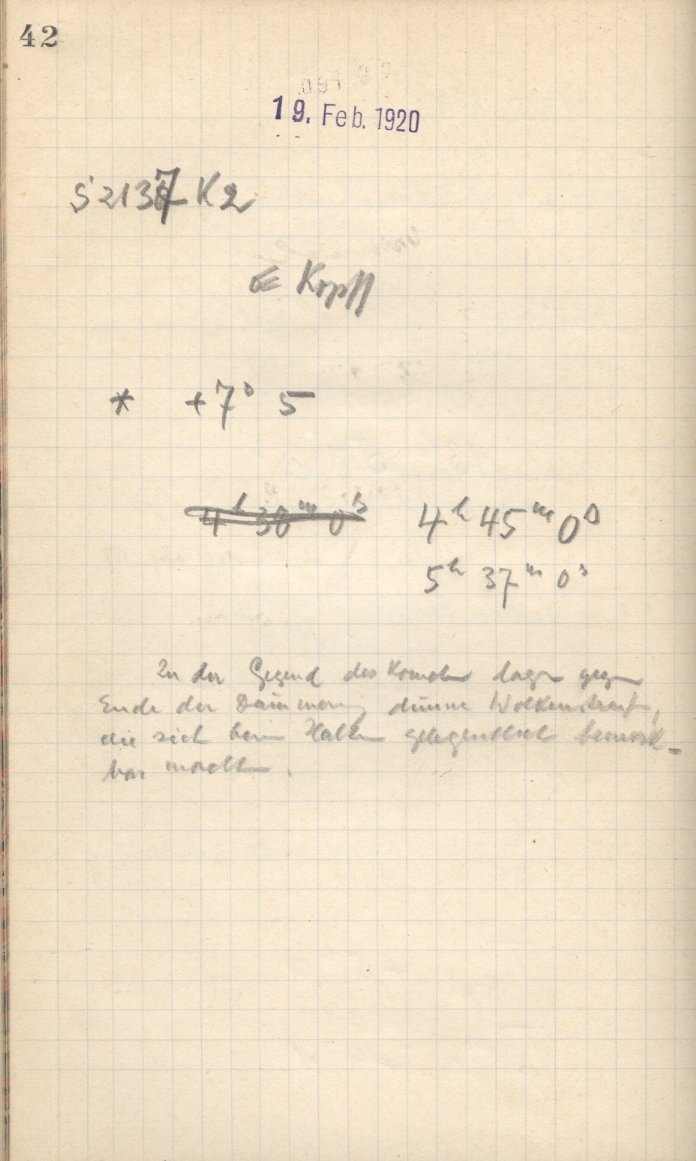 42
19. Feb. 1920
S 2137 K2
Kopff
* +7° 5
4h 30m 0s 4h 45m 0s
5h 37m 0s
In der Gegend des Kometen lagen gegen
Ende der Dämmerung dünne Wolkenstreifen,
die sich beim Halten gelegentlich bemerk-
bar machten.